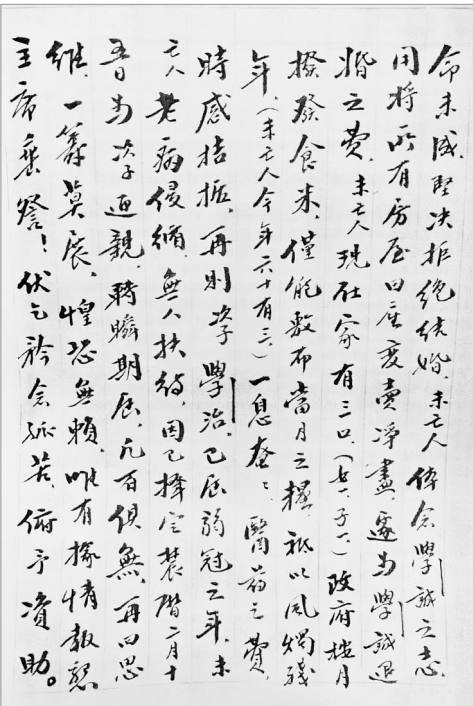 命未成，堅决拒絕結婚，未亡人俾念學誠之志，
用將所有房屋田産变賣凈盡，處為學誠退
婚之費，未亡人現在家有三口，（女一、子一）政府按月
撥發食米，僅能敷布當月之糧，祗以風燭殘
年，（未亡人今年六十有三）一息奄奄，醫葯之費，
時感拮据，再則次子學治，已屆弱冠之年，未
亡人老病侵循，無人扶待，因已擇定農曆二月十
吾日為次子迎親，轉瞬期屆，凡百俱無，再四思
維，一籌莫展，惶恐無賴，唯有掾情報懇
主席垂詧！伏乞矜念孤苦，俯予濟助。